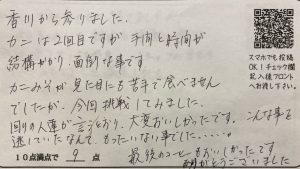 香川から参りました。
カニは2回目ですが手間と時間が
結構かかり、面倒な事です
カニみそが見た目にも苦手で食べません
でしたが、今回挑戦してみました。
回りの人達が言うとおり、大変おいしかったです。こんな事を
逃していたなんて、もったいない事でした.....
最後のコーヒーもおいしかったです
ありがとうございました
10点満点で 9 点
スマホでも投稿
OK!チェック欄
記入後フロント
へお渡し下さい。